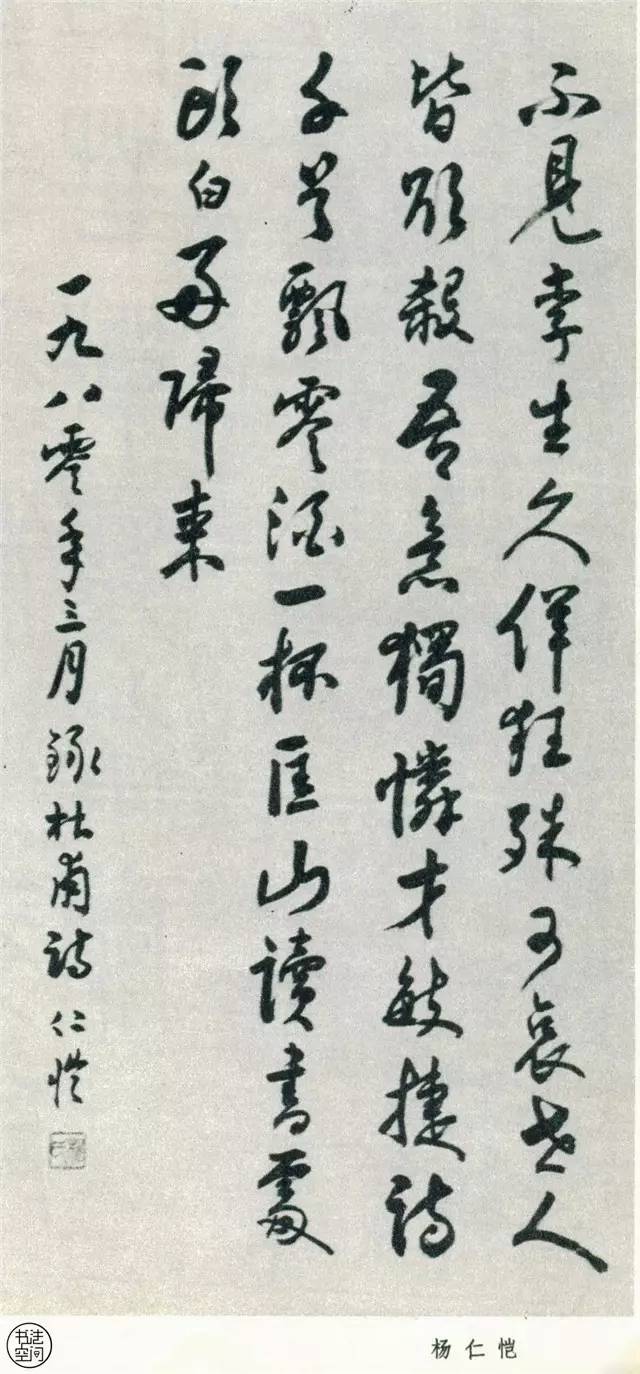 不見李生久佯狂殊可哀世人
皆欲殺吾意獨憐才敏捷詩
千首飄零酒一杯匡山讀書處
頭白好歸來
一九八零年三月錄杜甫詩仁愷
杨仁恺
书法
空间